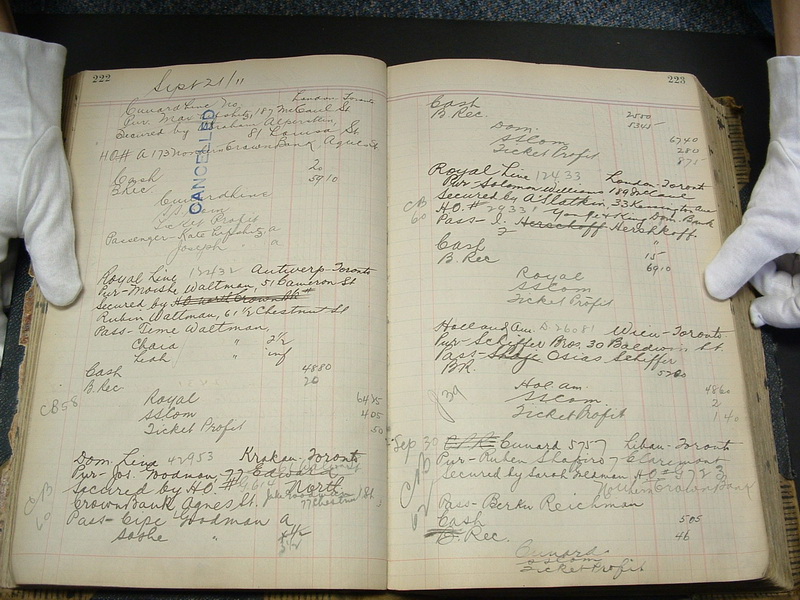 222
Sept 21/11
Cunard Line No. London-Toronto
Pur. Max Lipshitz, 187 McCaul St
Secured by Abraham Alperstein,
81 Louisa St.
HO# A 173 Northern Crown Bank Agnes St
CANCELLED
Cash 20
B.Rec 5910
Cunardline
SSCom
Ticket Profit
Passenger-Kate Lipshitz a
Joseph " a
Royal Line Antwerp-Toronto
Pur-Moishe Waltman, 51 Cameron St
Secured by HO North Crown Bk #
Rubin Waltman, 61 1/2 Chestnut St
Pass-Teme Waltman,
Chara " 2 1/2
Leah " inf
Cash 4880
B.Rec 20
CB 58
Royal 6475
SSCom 405
Ticket Profit 50
Dom. Line 42953 Krakau-Toronto
Pur-Jos. Woodman-77 Edward
Secured by H.O. # North
Crown Bank Agnes St.
77 Chestnut St.
CB 60
Pass-Cipe Woodman a
Sophe "
223
Cash 2550
B. Rec. 5345
Dom. 6740
SSCom 280
Ticket Profit 875
Royal Line 12433 London-Toronto
Pur-Solomon Williams 189 McCaul
Secured by A Slatkin, 33 Kensington Ave
CB 60
H.O. # 29331 Yonge & King Dom. Bank
Pass-I. Herschoff Hershkoff
Cash 15
B. Rec 6910
Royal
SSCom
Ticket Profit
Holland Am. D.26081 Wien-Toronto
Pur-Schiffer Bros. 30 Baldwin St.
Pass- Osias Schiffer
BR. 5200
J 39
Hol am. 4860
SSCom. 2
Ticket Profit 1 40
Sep 30 Cunard 5757 Libau-Toronto
Pur-Ruben Shapiro 7 Claremont
Secured by Sarah Nedman HO # 5723
Northern Crown Bank
CB 62
Pass-Berku Reichman
Cash 505
B. Rec. 46
Cunard
SSCom
Ticket Profit